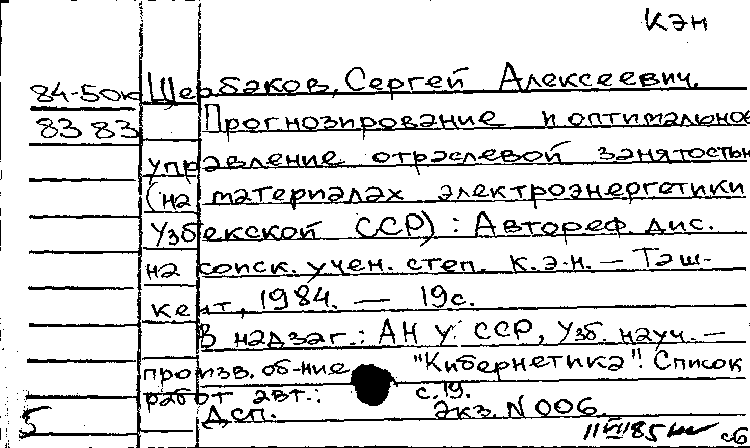 КЭН
84-50к Щербаков, Сергей Алексеевич.
8383 Прогнозирование и оптимальное
управление отраслевой занятостью
(на материалах электроэнергетики
Узбекской ССР) : Автореф. дис.
на соиск. учен. степ. к.э.н. — Таш-
кент, 1984. — 19 с.
В надзаг.: АН У. ССР, Узб. науч. —
произв. об-ние "Кибернетика". Список
работ авт.: с. 19.
5 Дсп. Экз. N 006.